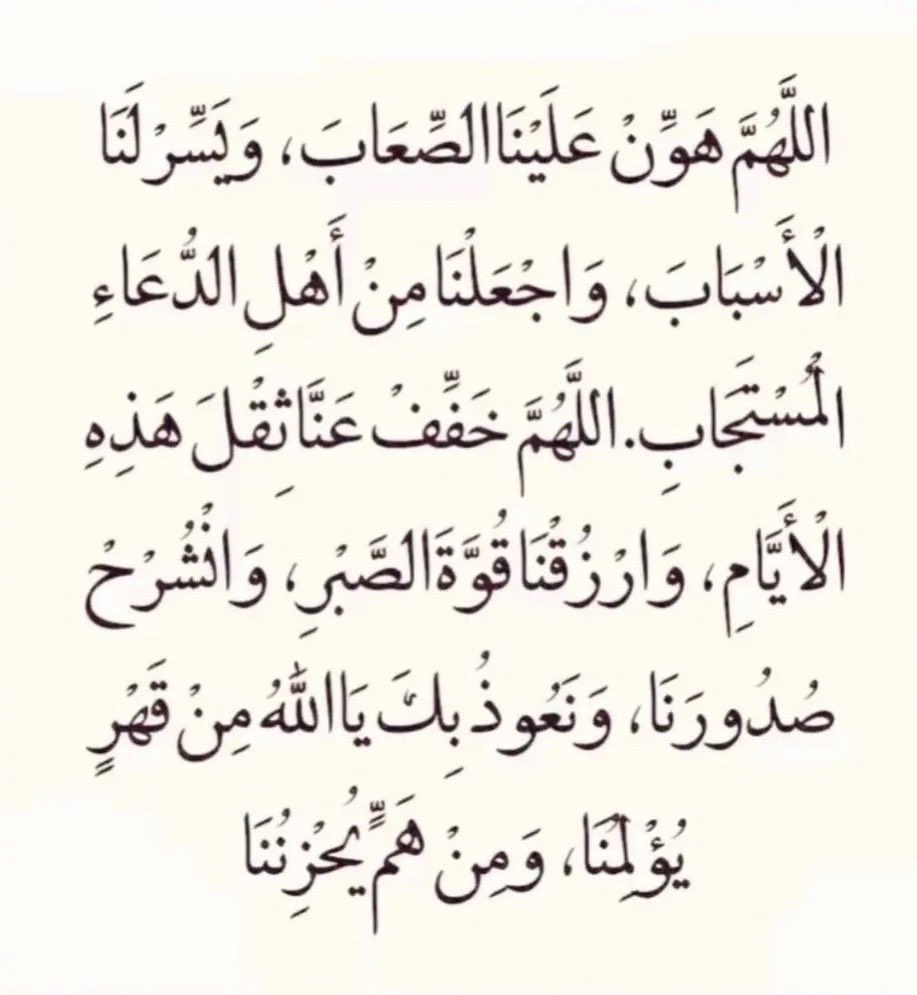 اللَّهُمَّ هَوِّنْ عَلَيْنَا الصِّعَابَ، وَيَسِّرْ لَنَا
الْأَسْبَابَ، وَاجْعَلْنَا مِنْ أَهْلِ الدُّعَاءِ
الْمُسْتَجَابِ. اللَّهُمَّ خَفِّفْ عَنَّا ثِقْلَ هَذِهِ
الْأَيَّامِ، وَارْزُقْنَا قُوَّةَ الصَّبْرِ، وَانْشُرْحْ
صُدُورَنَا، وَنَعُوذُ بِكَ يَا اللَّهُ مِنْ قَهْرٍ
يُؤْلِمُنَا، وَمِنْ هَمٍّ يُحْزِنُنَا